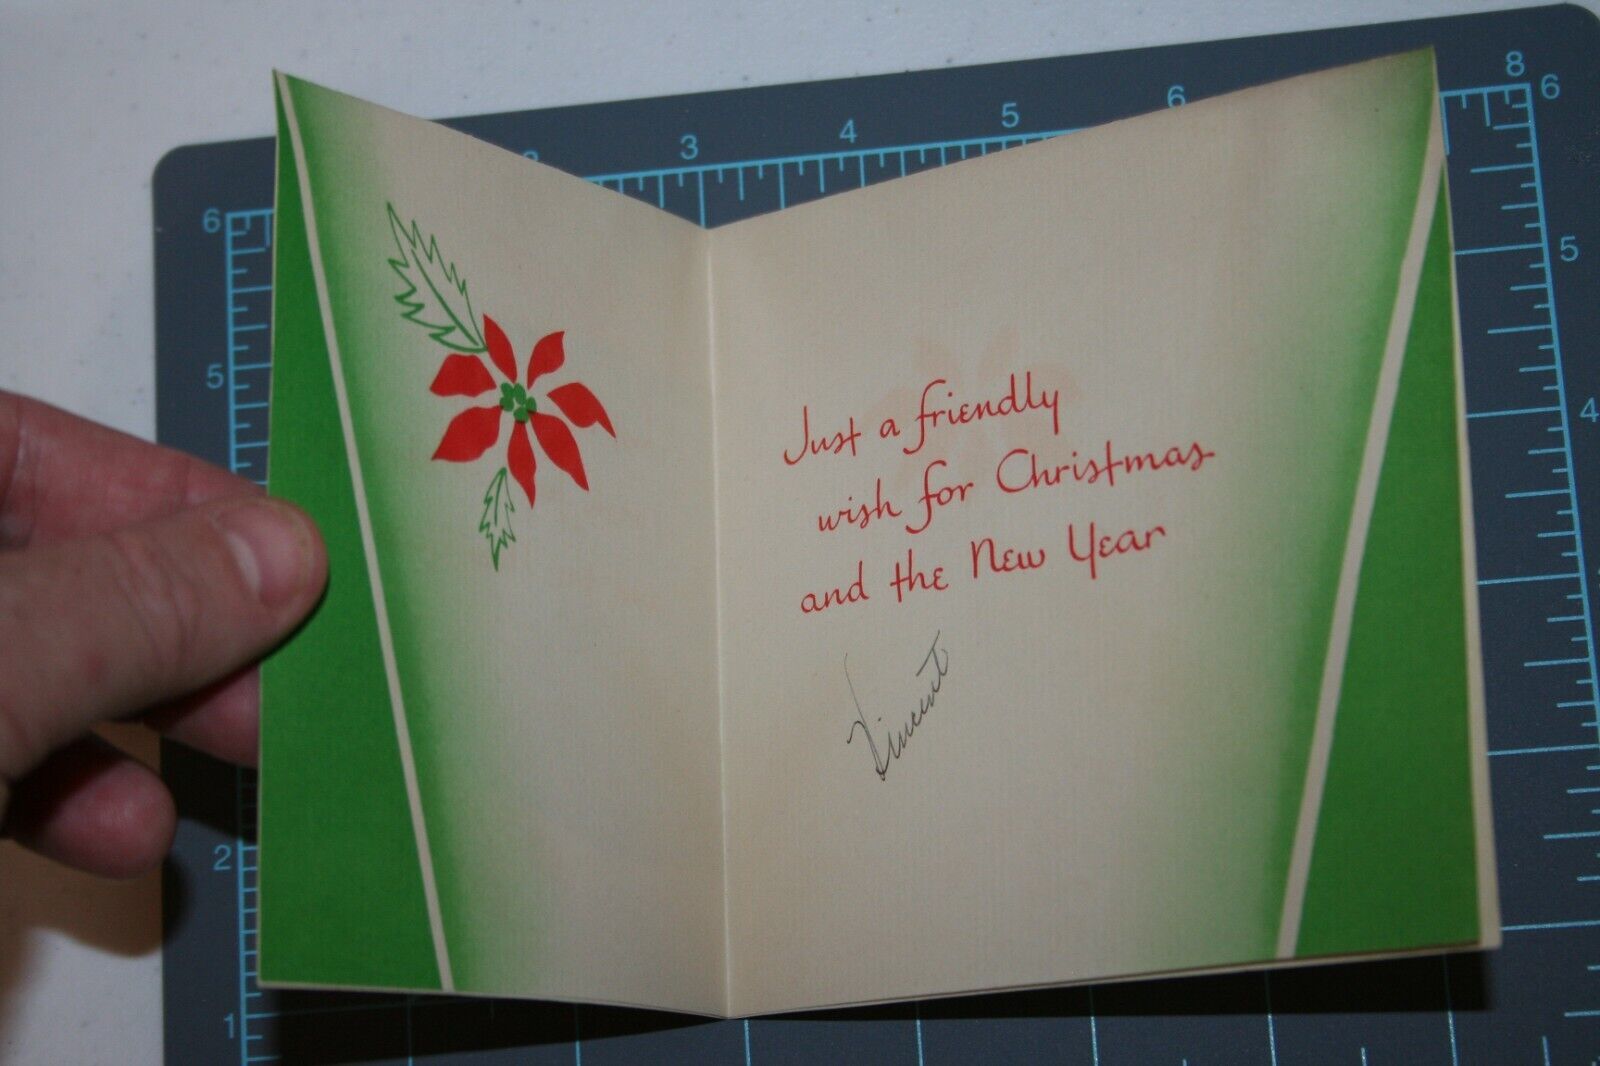 2 3 4 5 6 8
6 6
5 5
4
2
1
Just a friendly
wish for Christmas
and the New Year
Vincent